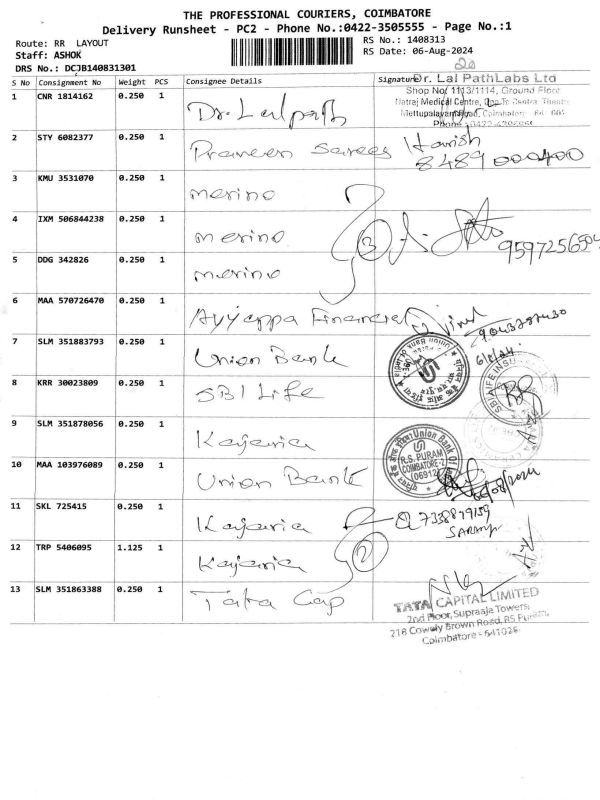 THE PROFESSIONAL COURIERS, COIMBATORE
Delivery Runsheet - PC2 - Phone No.:0422-3505555 - Page No.:1
Route: RR LAYOUT
Staff: ASHOK
DRS No.: DCJB140831301
RS No.: 1408313
RS Date: 06-Aug-2024
20
S No Consignment No Weight PCS Consignee Details Signature
Dr. Lal PathLabs Ltd
Shop No: 1113/1114, Ground Floor
Natraj Medical Centre, Opp To Central Theatre
Mettupalayam Road, Coimbatore - 641 001
1 CNR 1814162 0.250 1 Dr. Lalpath
2 STY 6082377 0.250 1 Praveen Sarees Harish
8489 000400
3 KMU 3531070 0.250 1 merino
4 IXM 506844238 0.250 1 merino 3
9597256504
5 DDG 342826 0.250 1 merino
6 MAA 570726470 0.250 1 Ayyappa Financial
7 SLM 351883793 0.250 1 Union Bank
6/8/24
8 KRR 30023809 0.250 1 SBI Life
SBI LIFE INSU
9 SLM 351878056 0.250 1 Kajaria
Union Bank Of
R.S. PURAM
COIMBATORE-2
(06912)
10 MAA 103976089 0.250 1 Union Bank
11 SKL 725415 0.250 1 Kajaria 7338879159
SARANYA
12 TRP 5406095 1.125 1 Kajaria 2
13 SLM 351863388 0.250 1 Tata Cap
TATA CAPITAL LIMITED
2nd Floor, Supraaje Towers,
218 Cowely Brown Road, RS Puram,
Coimbatore - 641026.